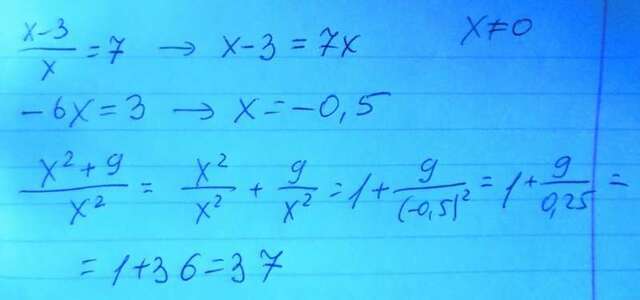 (x-3)/x = 7 → x-3 = 7x x≠0
-6x = 3 → x = -0,5
(x²+9)/x² = x²/x² + 9/x² = 1 + 9/(-0,5)² = 1 + 9/0,25 =
= 1+36 = 37